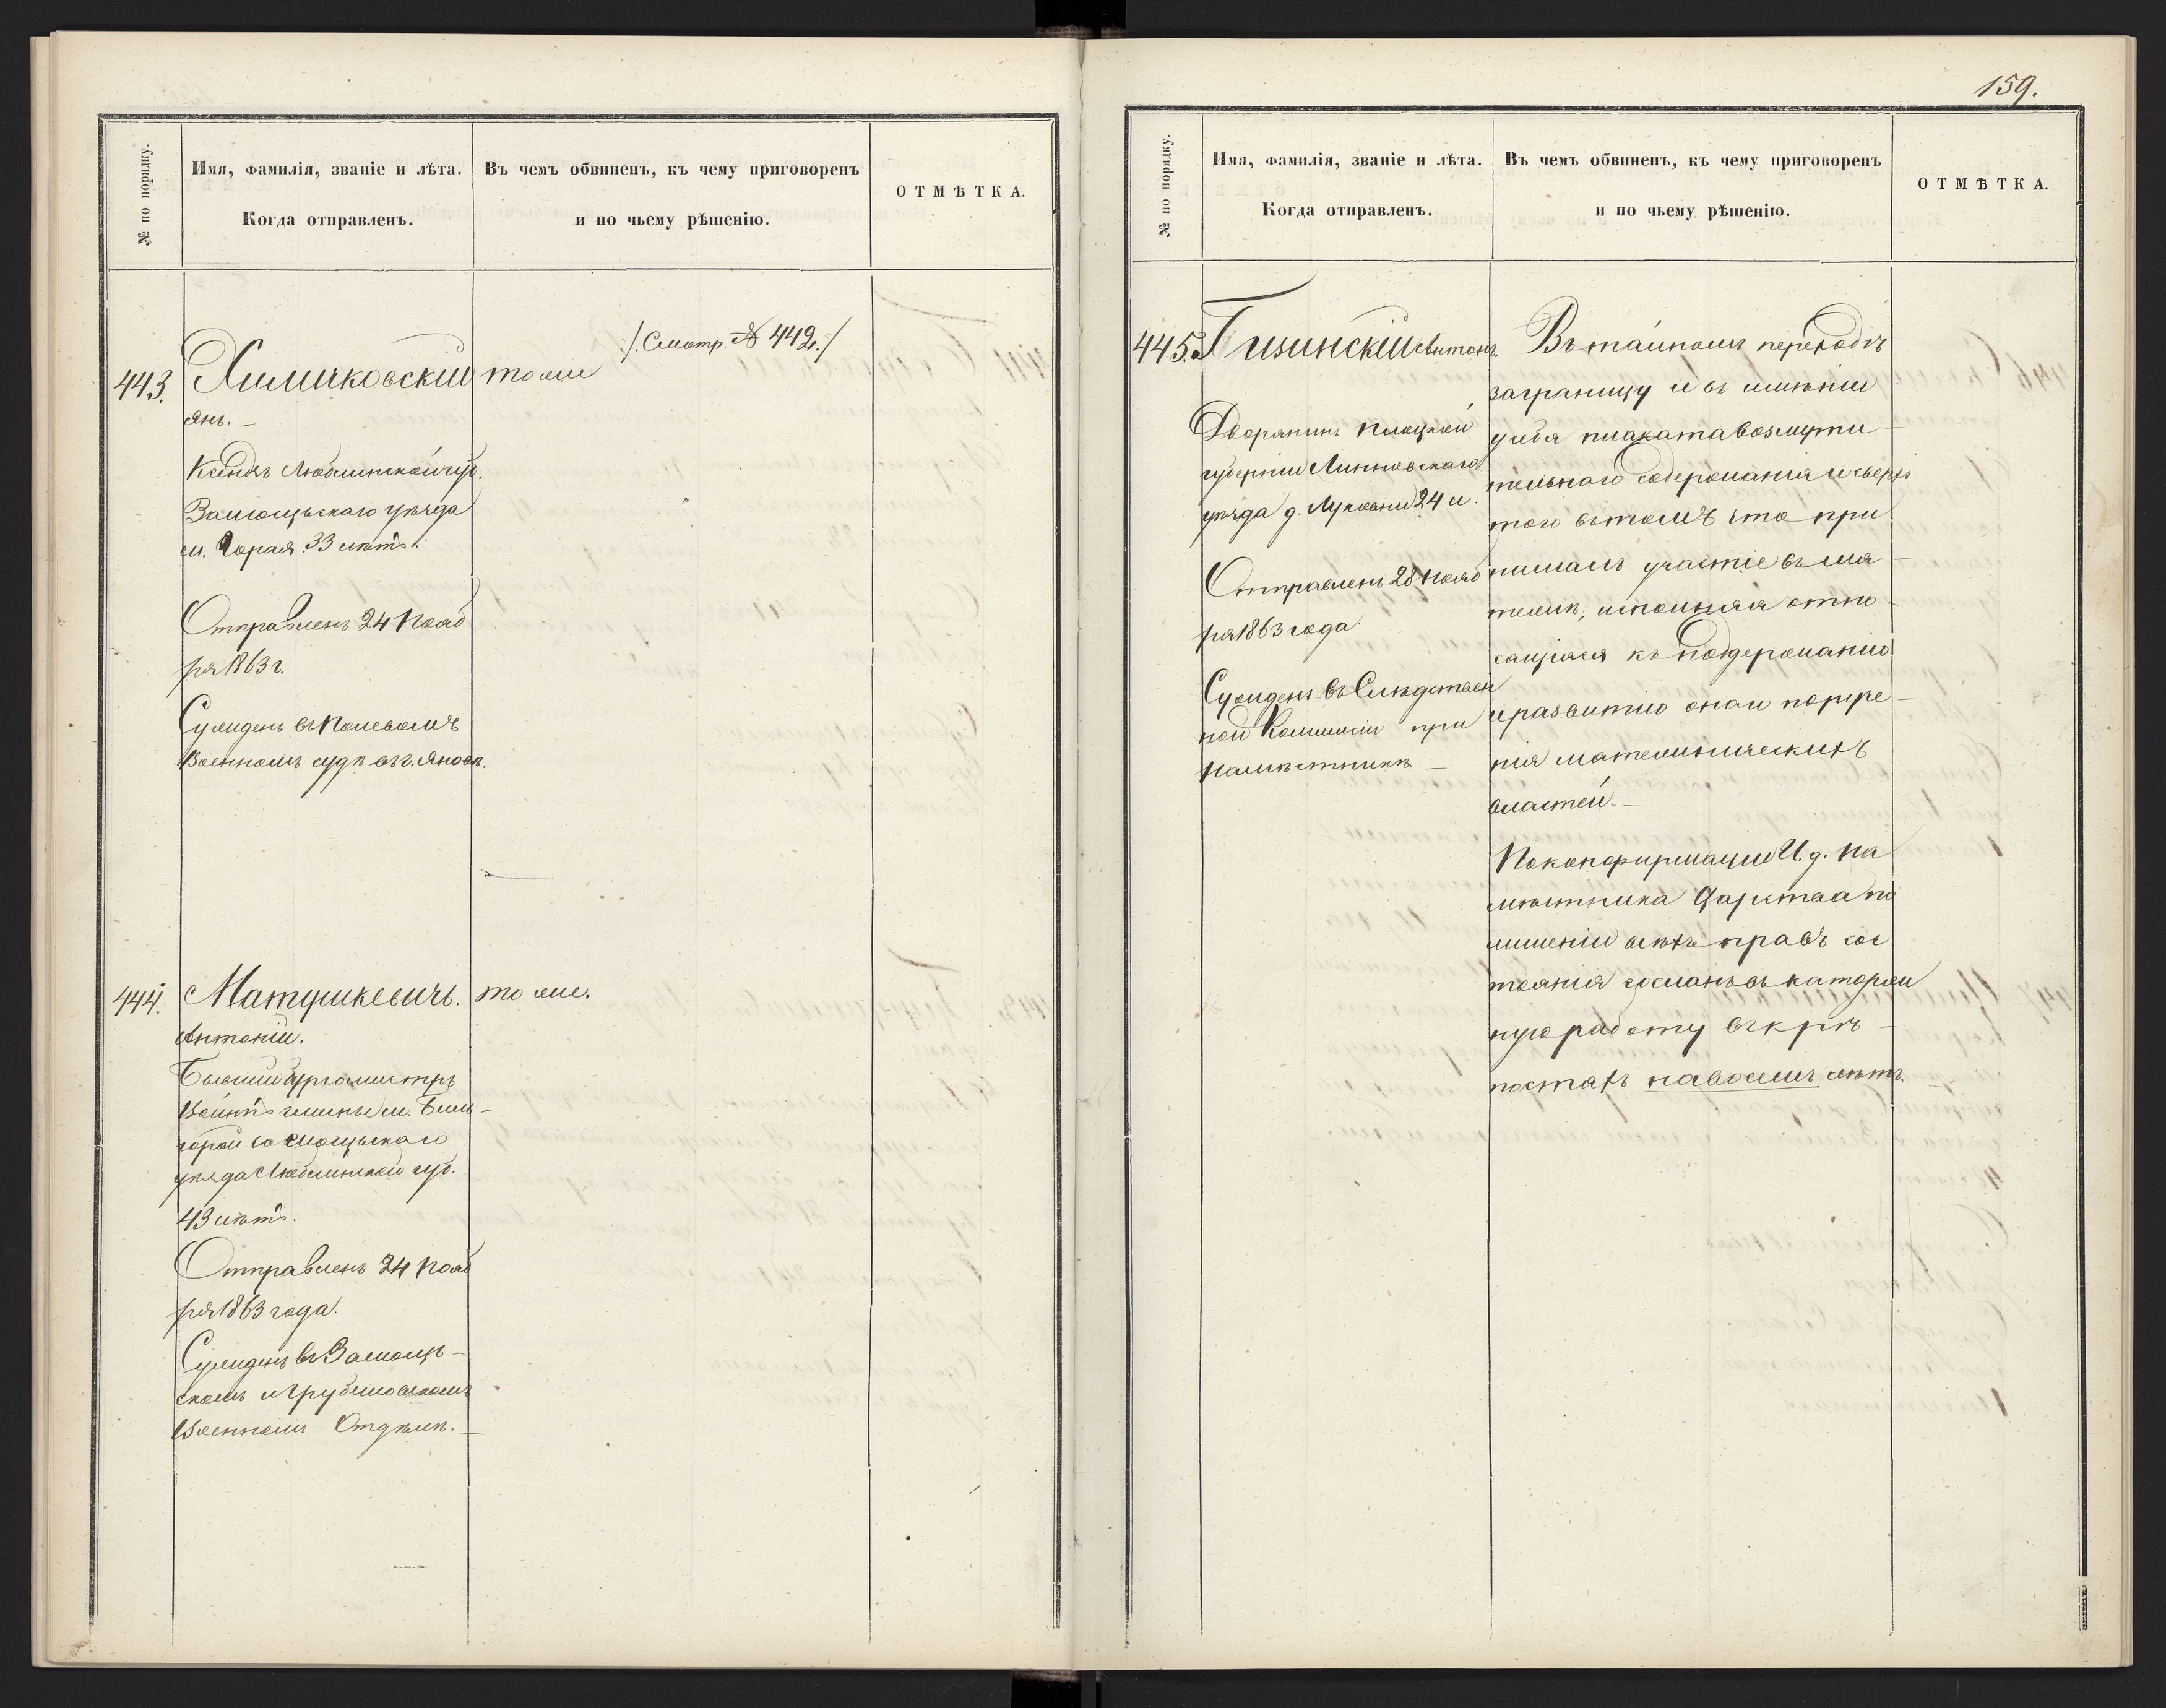 № по порядку.
Имя, фамилія, званіе и лѣта.
Когда отправленъ.
Въ чемъ обвиненъ, къ чему приговоренъ
и по чьему рѣшенію.
ОТМѢТКА.
/Смотр. № 442./
443. Химичковскій тоже
Янъ. –
Ксендзъ Люблинской губ.
Замосцьскаго уѣзда
м. Горая 33 лѣтъ.
Отправленъ 24 Нояб
ря 1863 г.
Сужденъ въ Полевомъ
Военномъ судѣ въ г. Яновѣ.
444. Матушкевичъ. тоже.
Антоній.
Бывшій Бургомистръ
Войтъ гмины м. Билг-
горай Замосцьскаго
уѣзда Люблинской губ.
43 лѣтъ.
Отправленъ 24 Нояб
ря 1863 года.
Сужденъ въ Замосць-
скомъ и Грубешовскомъ
Военномъ Отдѣлѣ. –
159.
№ по порядку.
Имя, фамилія, званіе и лѣта.
Когда отправленъ.
Въ чемъ обвиненъ, къ чему приговоренъ
и по чьему рѣшенію.
ОТМѢТКА.
445. Гизинскій Антонъ.
Дворянинъ Плоцкой
губерніи Липновскаго
уѣзда д. 24 л.
Отправленъ 28 Нояб
ря 1863 года.
Сужденъ въ Слѣдствен
ной Коммисіи при
Намѣстникѣ –
Въ тайномъ переходѣ
заграницу и въ имѣніи
у себя плаката возмути-
тельнаго содержанія и сверхъ
того въ томъ что при
нималъ участіе въ мя-
тежѣ, исполняя отно-
сящіяся къ поддержанію
и развитію онаго поруче-
нія мятежническихъ
властей. –
По конфирмаціи И. д. На
мѣстника Царства по
лишеніи всѣхъ правъ сос
тоянія сосланъ въ каторж
ную работу въ крѣ-
постяхъ на восемь лѣтъ.